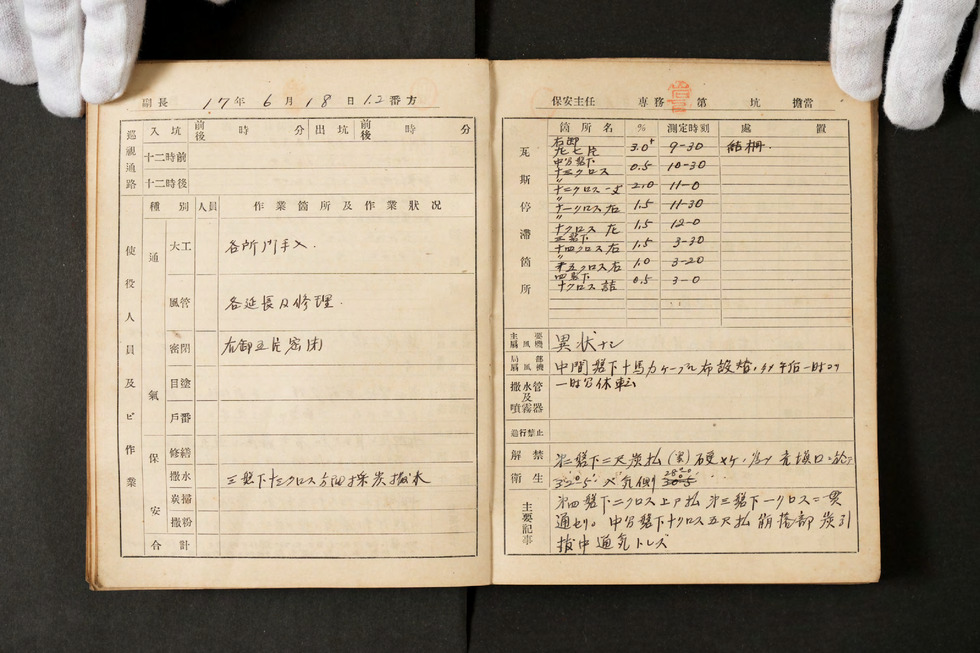 副長 17年 6月 18日 1.2番方
巡視通路
入坑 前後 時 分 出坑 前後 時 分
十二時前
十二時後
使役人員及ビ作業
種別 人員 作業箇所及作業状況
通氣
大工 各所門手入.
風管 各延長及修理.
密閉 右卸五片密閉
目塗
戸番
保安
修繕
撒水 三盤下十三クロス方面採炭撒水
炭掃
撒粉
合計
保安主任 専務 第 坑 擔當
瓦斯停滞箇所
箇所名 % 測定時刻 處置
右卸
九七片 3.0 9-30 結柵.
中号盤下
十三クロス 0.5 10-30
〃
十二クロス 2.0 11-0
〃
十一クロス右 1.5 11-30
〃
十クロス左 1.5 12-0
三盤下
十四クロス右 1.5 3-30
〃
十五クロス右 1.0 3-20
四盤下
十クロス詰 0.5 3-0
主要扇風機 異状ナシ
局部扇風機 中間盤下十馬力ケーブル布設替ノタメ午后一時ヨリ
一時合休転
撒水管及噴霧器
通行禁止
解禁
衛生
第二盤下二尺炭払
主要記事
第四盤下二クロス上ア払第三盤下一クロス二貫
通セリ。中号盤下十クロス五尺払崩落部炭引
抜中通気トレズ